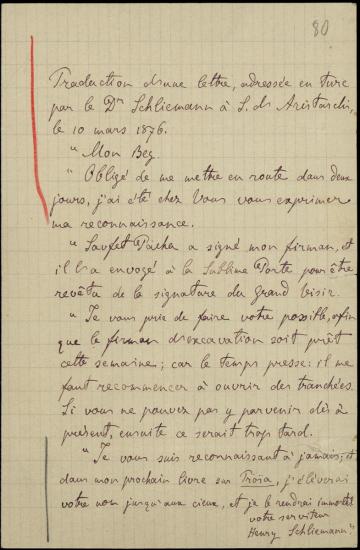 80
Traduction d'une lettre, adressée en turc
par le Dr Schliemann à S. de Aristarchi,
le 10 mars 1876.
" Mon Bey.
" Obligé de me mettre en route dans deux
jours, j'ai été chez Vous vous exprimer
ma reconnaissance.
" Savfet Pacha a signé mon firman, et
il l'a envogé à la Sublime Porte pour être
revêtu de la signature du Grand Vesir.
" Je vous prie de faire votre possible, afin
que le firman d'excavation soit prêt
cette semaine; car le temps presse: il me
faut recommencer à ouvrir des tranchées.
Si vous ne pouvez pas y parvenir dès à
présent, ensuite ce serait trop tard.
" Je vous suis reconnaissant à jamais; et
dans mon prochain livre sur Troïa, j'élèverai
votre nom jusqu'aux cieux, et je le rendrai immortel
votre serviteur
Henry Schliemann."